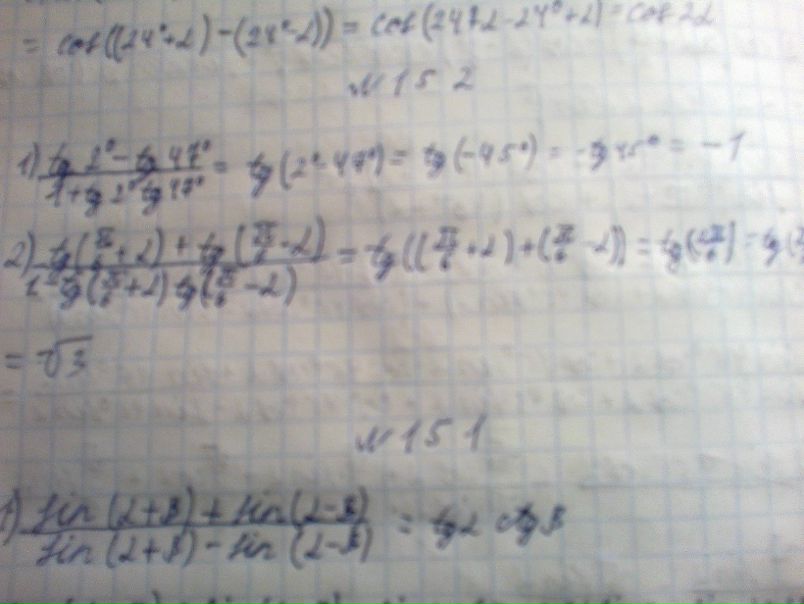 = cos((24°+α)-(24°-α)) = cos(24°+α-24°+α) = cos 2α
№ 152
1) (tg 2° - tg 47°)/(1 + tg 2° tg 47°) = tg(2°-47°) = tg(-45°) = -tg 45° = -1
2) (tg(π/6+α) + tg(π/6-α))/(1 - tg(π/6+α) tg(π/6-α)) = tg((π/6+α)+(π/6-α)) = tg(2π/6) = tg(
= √3
№ 151
1) (sin(α+β) + sin(α-β))/(sin(α+β) - sin(α-β)) = tgα ctgβ